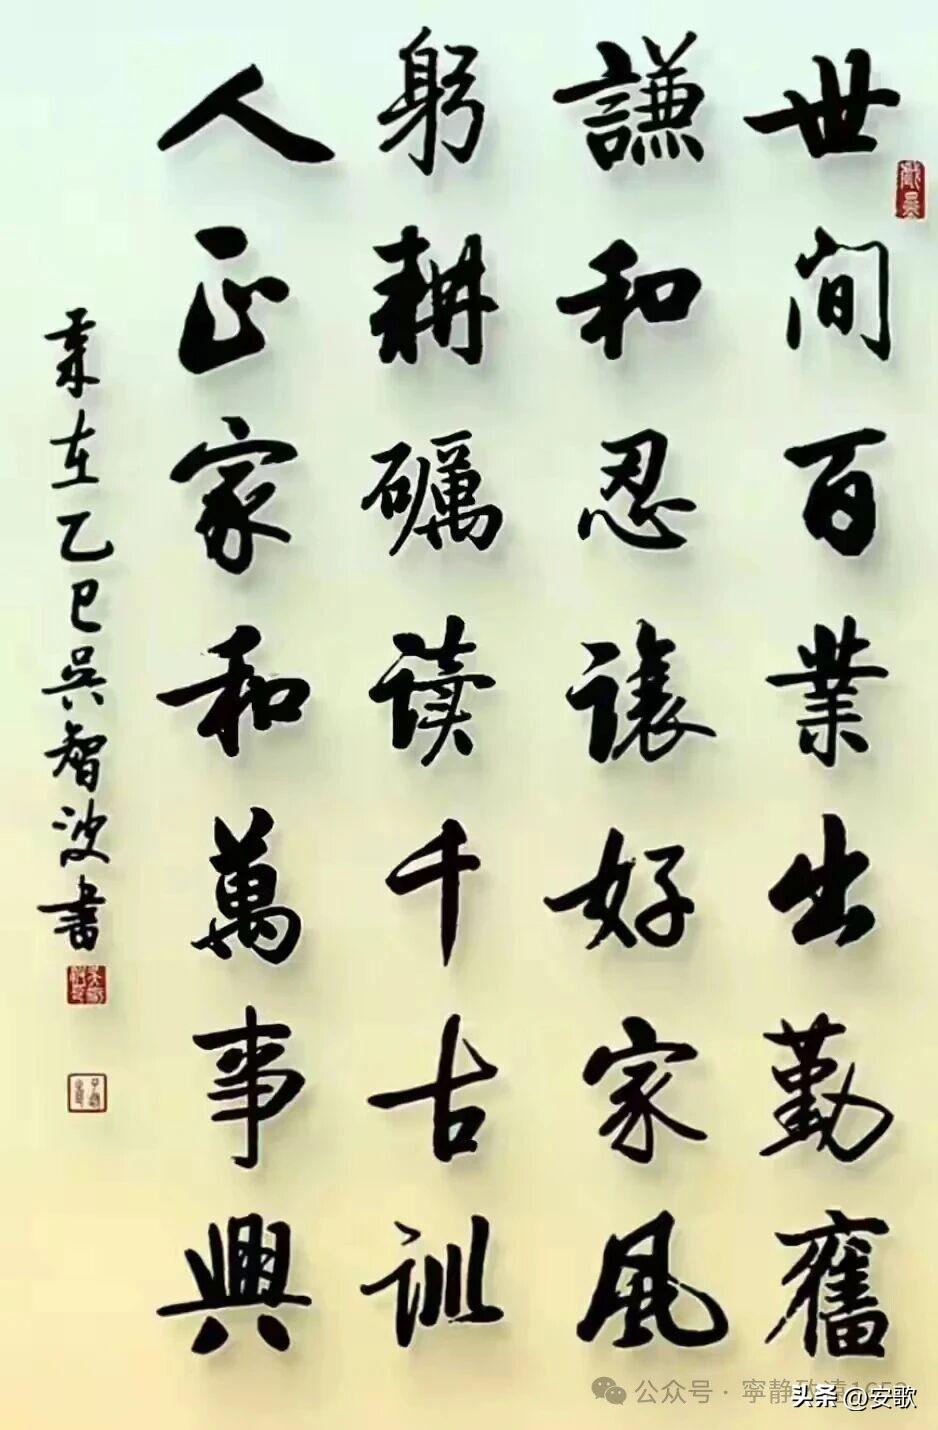 世间百業出勤奮
謙和忍讓好家風
躬耕礪读千古訓
人正家和萬事興
歲在乙巳吳智波書
公众号 · 寧静致遠
头条 @安歌